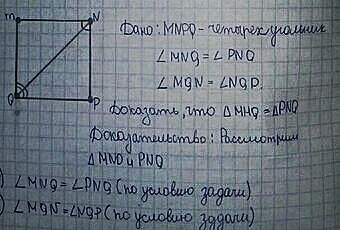 M N
Q P
Дано: MNPQ - четырехугольник
∠MNQ = ∠PNQ
∠MQN = ∠NQP.
Доказать, что △MNQ = △PNQ
Доказательство: Рассмотрим
△MNQ и PNQ
) ∠MNQ = ∠PNQ (по условию задачи)
) ∠MQN = ∠NQP (по условию задачи)